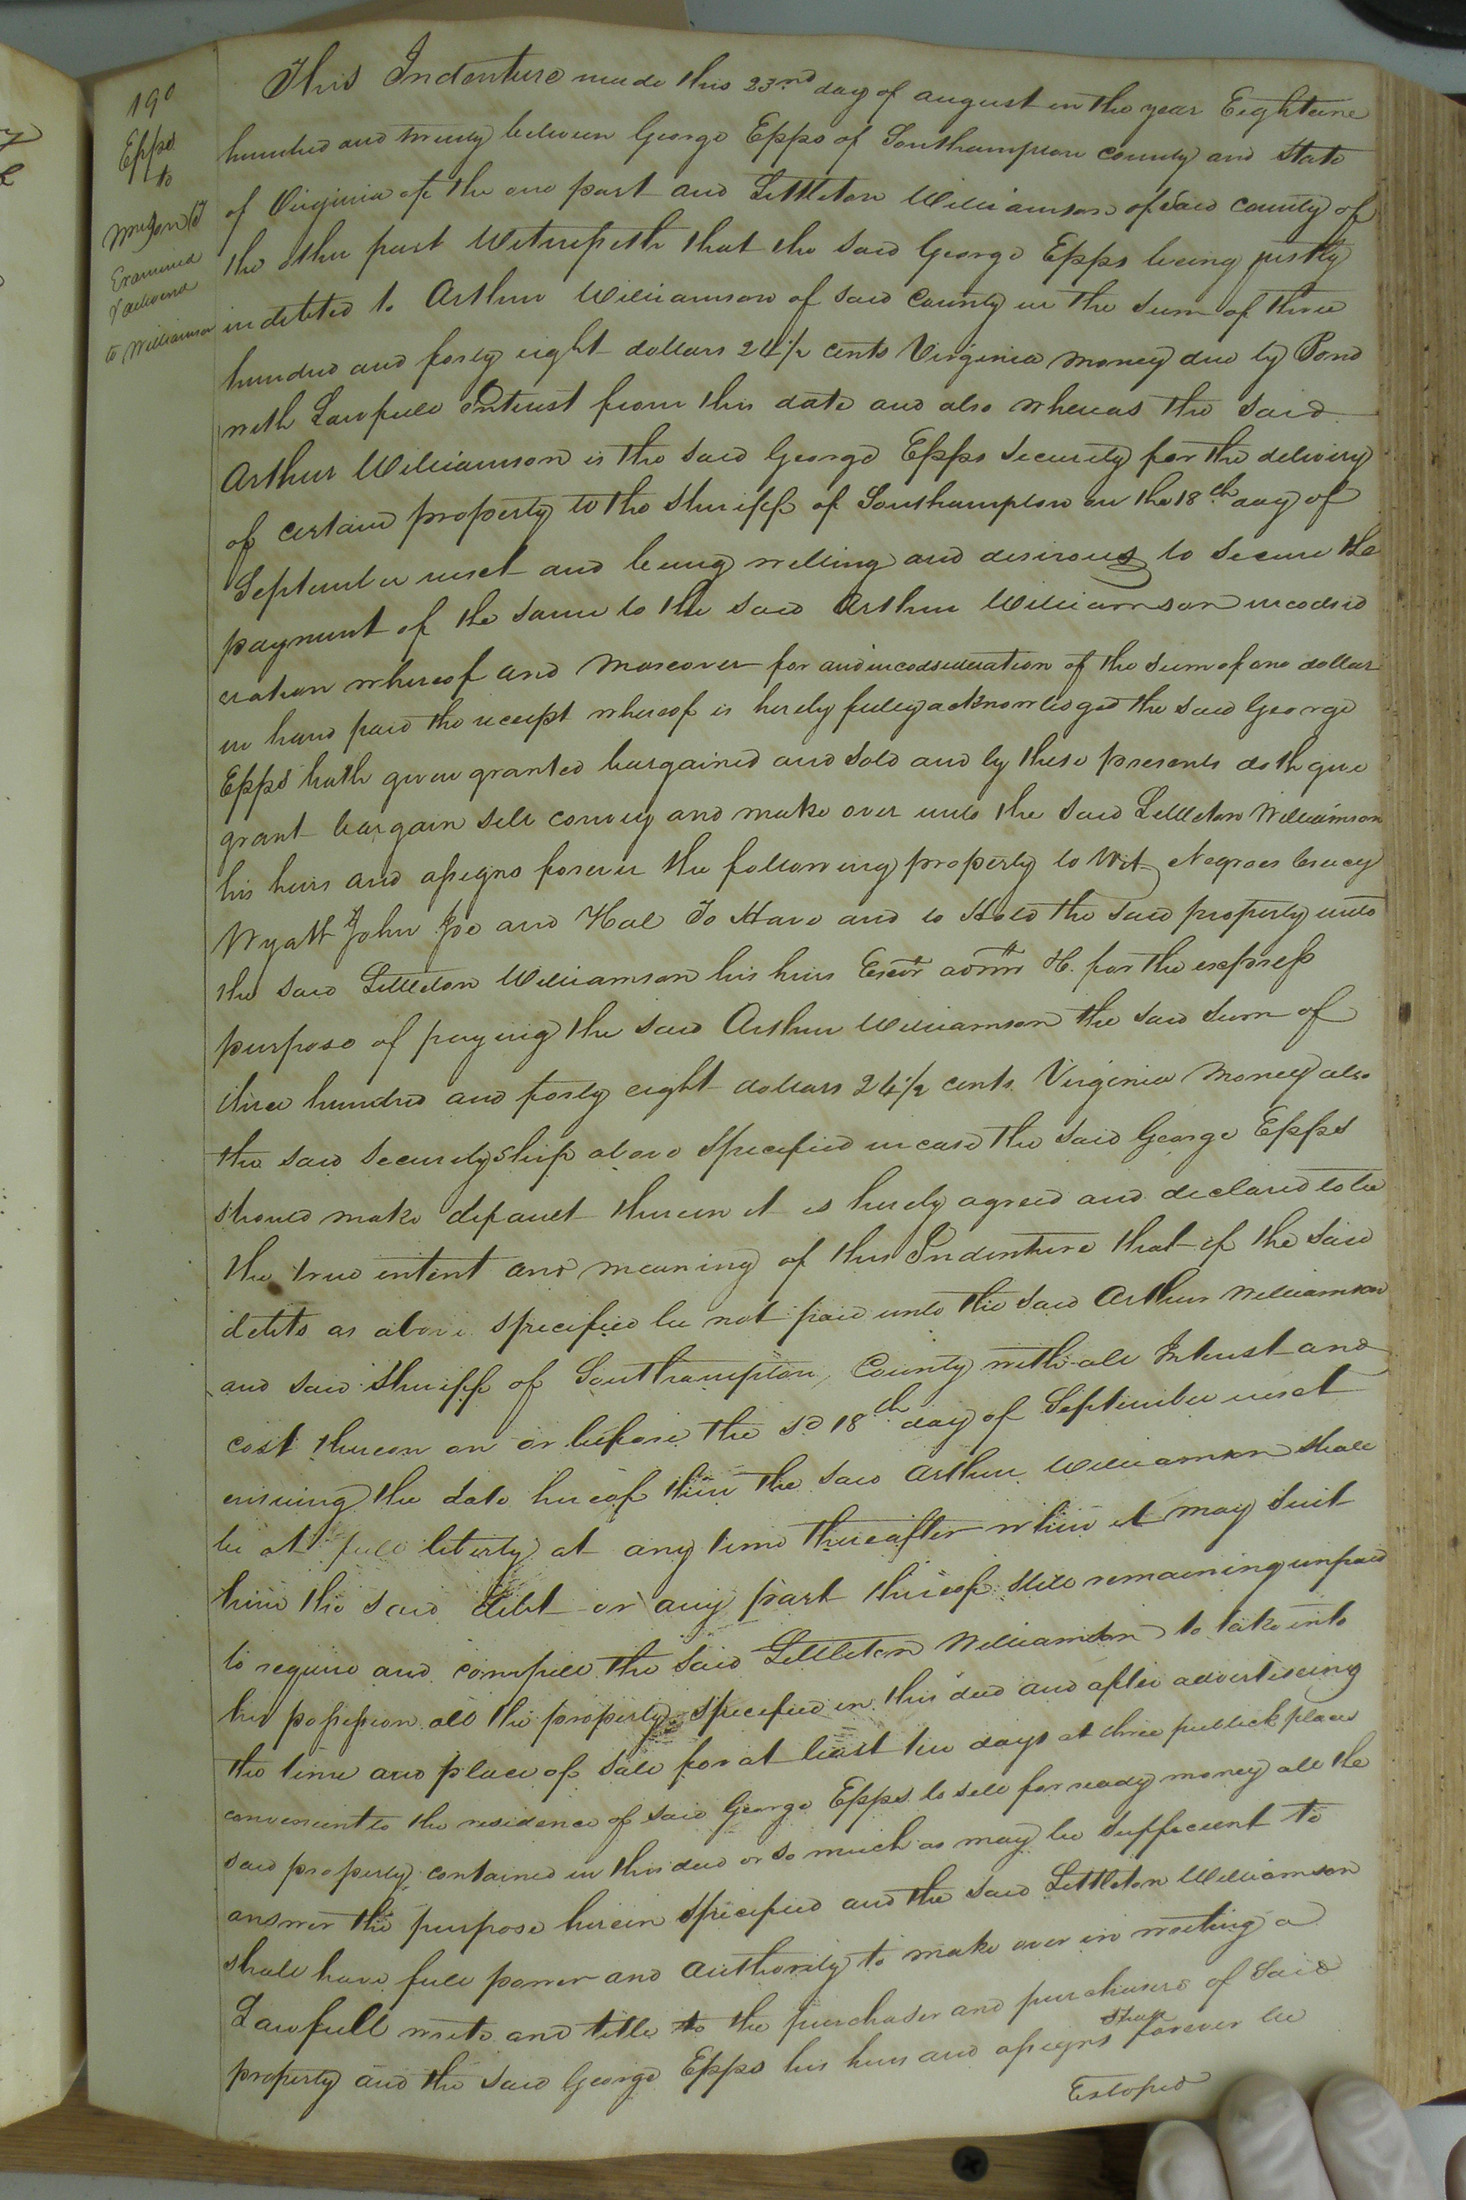 190
Epps
to
Wmson
Examined
& delivered
to Williamson
This Indenture made this 23nd day of august in the year Eighteene
hundred and twenty between George Epps of Southampton county and State
of Virginia of the one part and Littleton Williamson of Said county of
the other part Witnesseth that the said George Epps being justly
indebted to Arthur Williamson of said County in the sum of three
hundred and forty eight dollars 24½ cents Virginia money due by Bond
with Lawfull Intrust from this date and also whereas the said
Arthur Williamson is the said George Epps security for the delivery
of certain property to the Sheriff of Southampton on the 18th day of
September next and being willing and desirous to secure the
payment of the same to the said Arthur Williamson in consid
eration whereof and moreover for and in consideration of the sum of one dollar
in hand paid the receipt whereof is hereby fully acknowledged the said George
Epps hath given granted bargained and sold and by these presents doth give
grant bargain sell convey and make over unto the said Littleton Williamson
his heirs and assigns forever the following property to Wit Negroes
Wyatt John Joe and Hal To Have and to Hold the said property unto
the said Littleton Williamson his heirs Exors admrs &c. for the express
purpose of paying the said Arthur Williamson the said sum of
three hundred and forty eight dollars 24½ cents Virginia money also
the said securityship above specified in case the said George Epps
should make default therein it is hereby agreed and declared to be
the true intent and meaning of this Indenture that if the said
debts as above specified be not paid unto the said Arthur Williamson
and said Sheriff of Southampton County with all Intrust and
cost thereon on or before the sd 18th day of September next
ensuing the date hereof then the said Arthur Williamson shall
be at full liberty at any time thereafter when it may suit
him the said debt or any part thereof still remaining unpaid
to require and compell the said Littleton Williamson to take into
his possession all the property specified in this deed and after advertiseing
the time and place of sale for at least ten days at three publick places
convenient to the residence of said George Epps to sell for ready money all the
said property contained in this deed or so much as may be sufficient to
answer the purpose herein specified and the said Littleton Williamson
shall have full power and authority to make over in writing a
Lawfull write and title to the purchaser and purchasers of said
property and the said George Epps his heirs and assigns shall forever be
Estoped